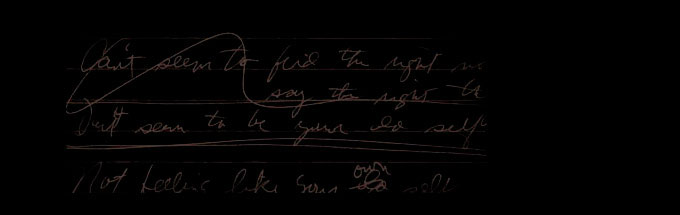 Can't seem to find the right
say the right
Don't seem to be your old self
Not feeling like your own self